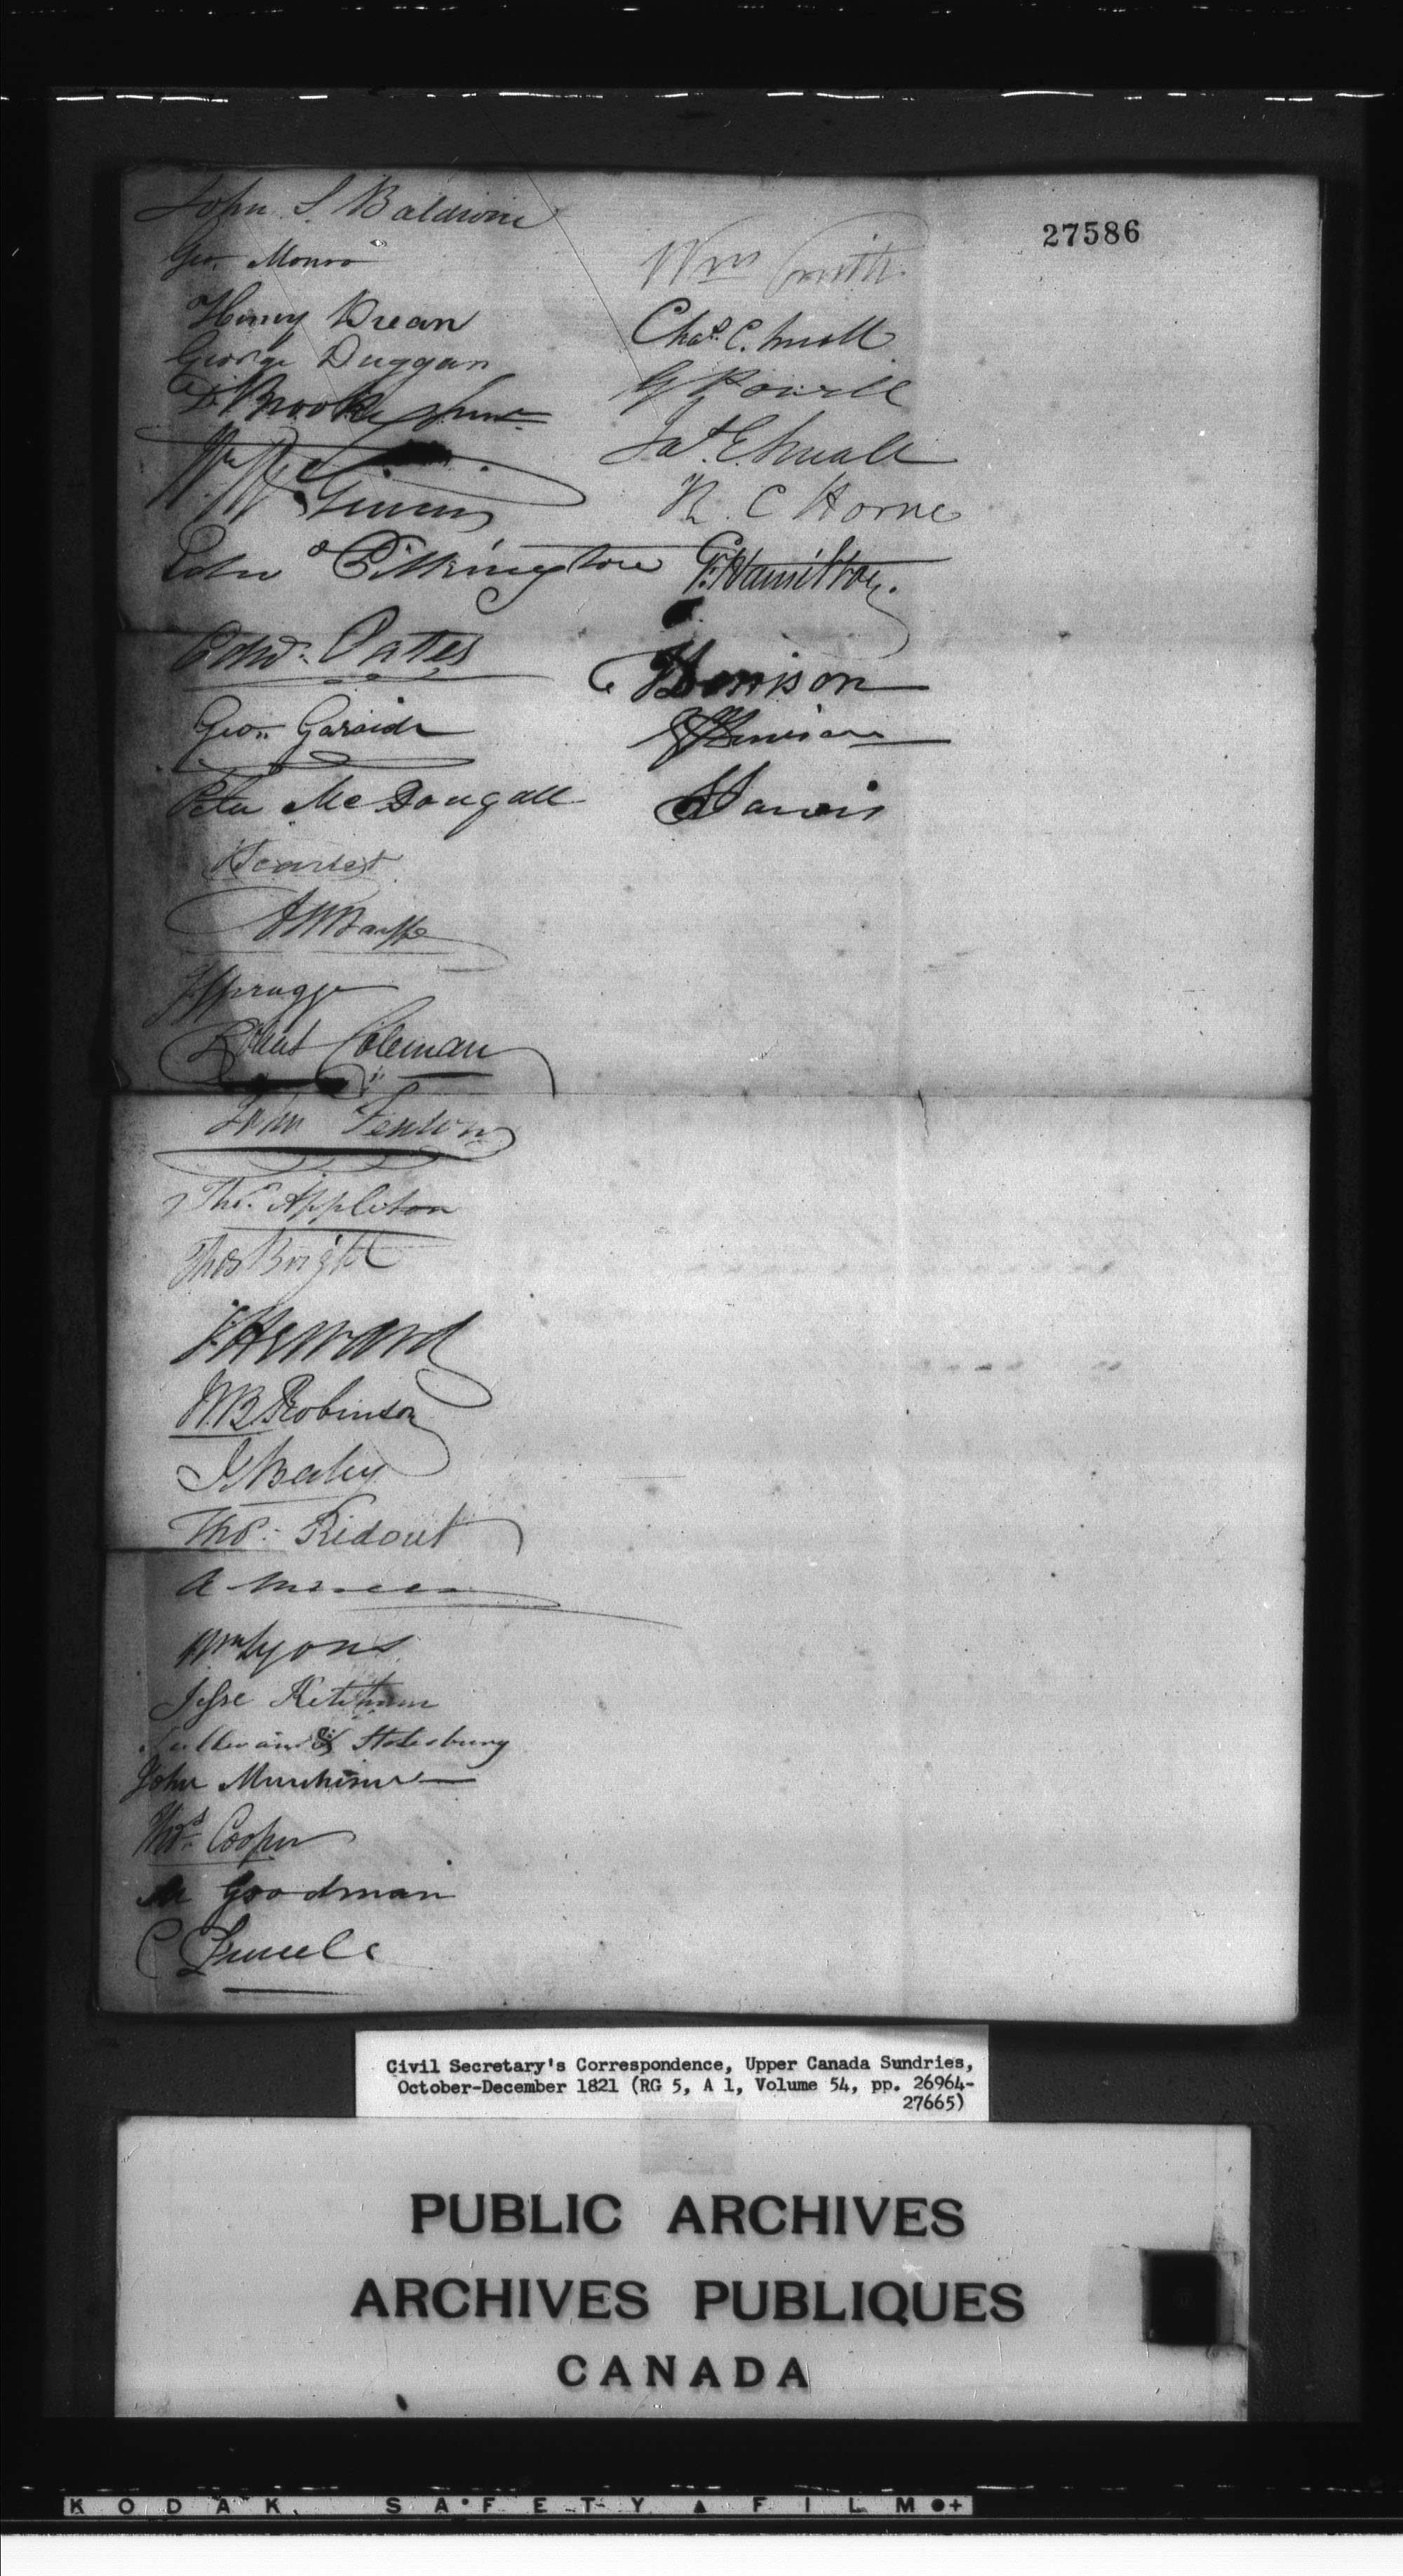 27586
John S. Baldwin
Geo. Monro
Henry Drean
George Duggan
D. Brooke Junr
Edwd Pilkington
Edwd. Oates
Geo. Garside
Peter McDougall
J Scarlet
J Spragge
Robert Coleman
John Fenton
Thos. Appleton
Thos Bright
S. Heward
W.B. Robinson
J. Baby
Thos. Ridout
A Mercer
Wm Lyons
Jesse Ketchum
& Stotesbury
John Murchison
Thos. Cooper
Goodman
Wm Smith
Chas. C. Small
G Powell
Jas. E. Small
R. C Horne
Hamilton
Denison
Denison
Jarvis
Civil Secretary's Correspondence, Upper Canada Sundries,
October-December 1821 (RG 5, A 1, Volume 54, pp. 26964-
27665)
PUBLIC ARCHIVES
ARCHIVES PUBLIQUES
CANADA
KODAK SAFETY ▲ FILM ●+